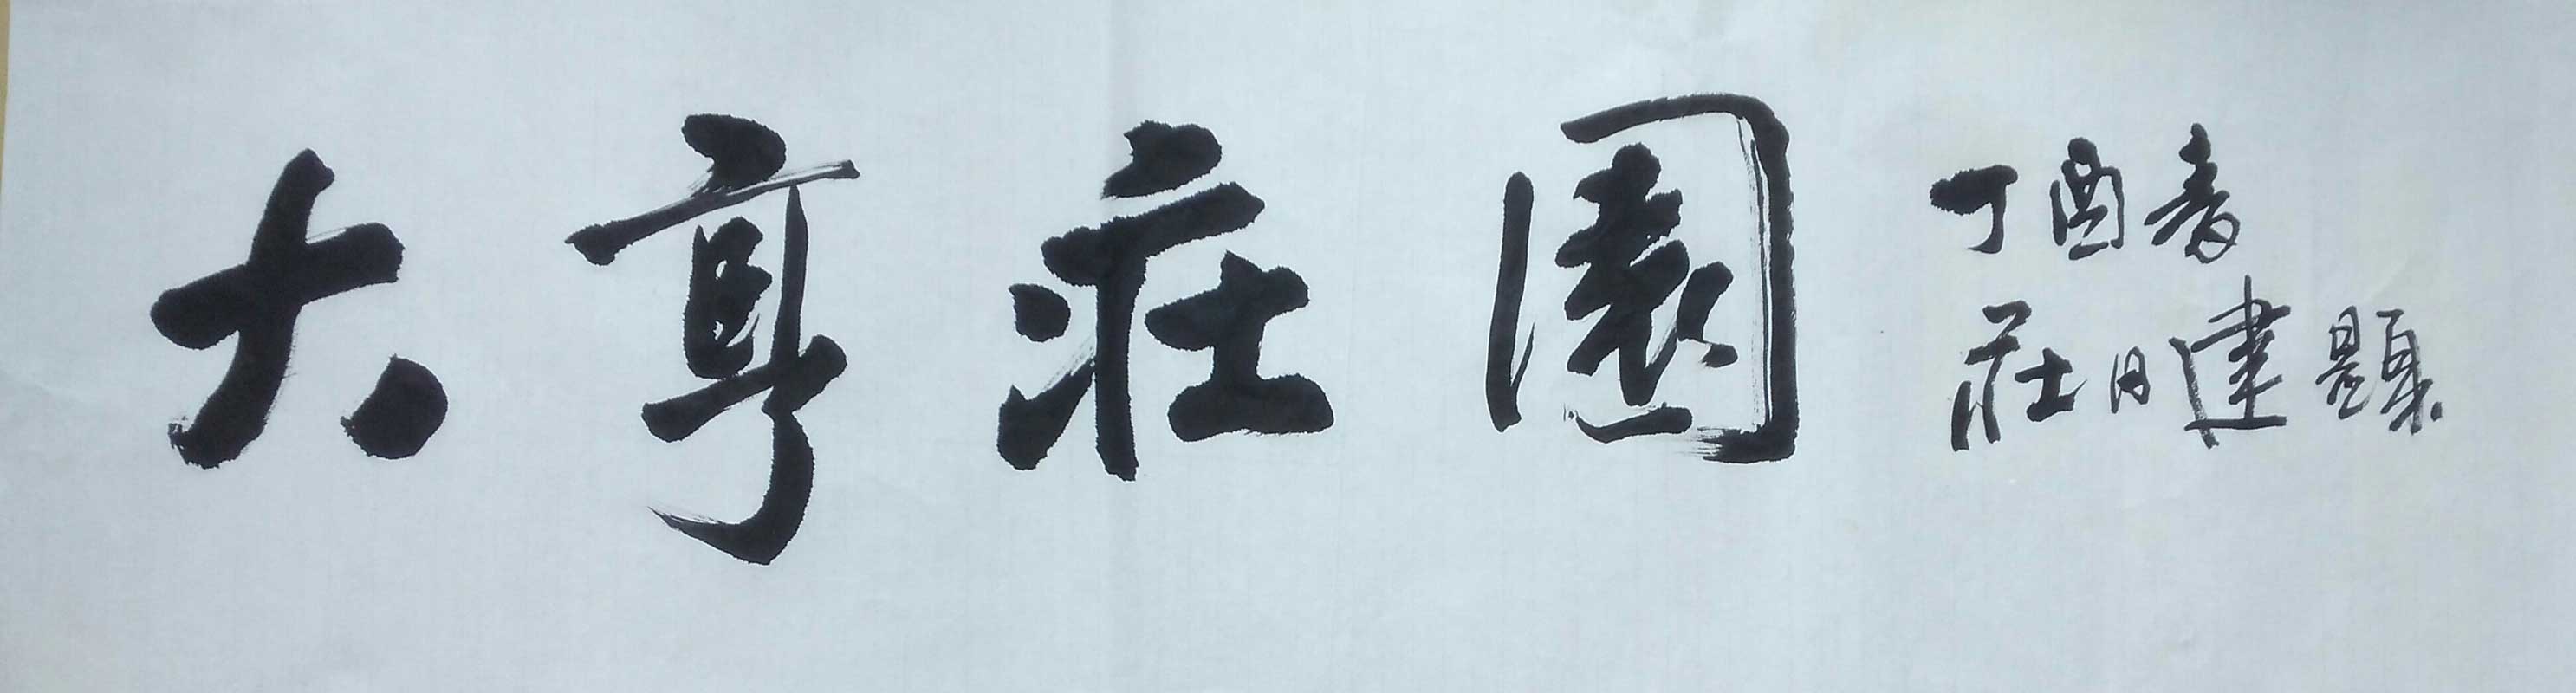 大亨莊園
丁酉春
莊日建題